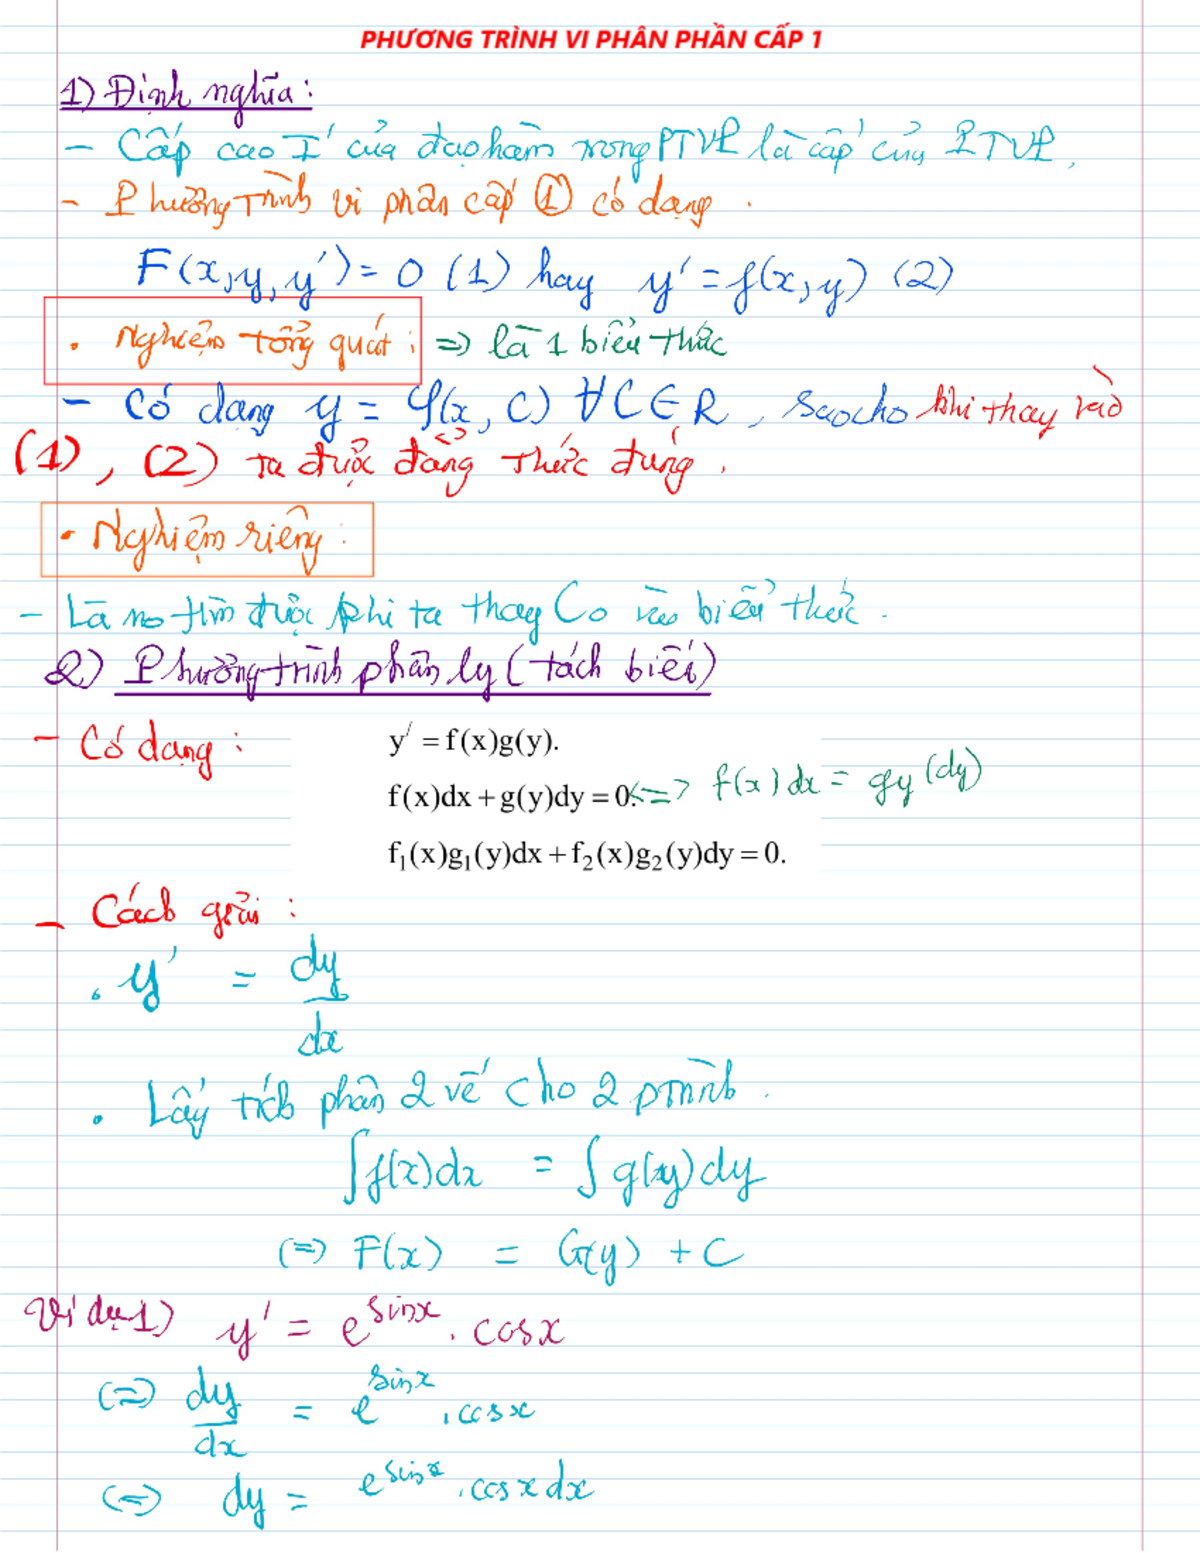 PHƯƠNG TRÌNH VI PHÂN PHẦN CẤP 1
1) Định nghĩa:
- Cấp cao I' của đạo hàm trong PTVP là cấp của PTVP.
- Phương Trình vi phân cấp ① có dạng.
F(x,y,y') = 0 (1) hay y' = f(x,y) (2)
• Nghiệm tổng quát: => là 1 biểu thức
- Có dạng y = φ(x, C) ∀C ∈ R, sao cho khi thay vào
(1), (2) ta được đẳng thức đúng.
• Nghiệm riêng:
- Là no tìm được khi ta thay Co vào biểu thức.
2) Phương trình phân ly (tách biến)
- Có dạng:
y' = f(x)g(y).
f(x)dx + g(y)dy = 0. <=> f(x)dx = gy(dy)
f₁(x)g₁(y)dx + f₂(x)g₂(y)dy = 0.
- Cách giải:
• y' = dy/dx
• Lấy tích phân 2 vế cho 2 ptrình.
∫f(x)dx = ∫g(y)dy
(=) F(x) = G(y) + C
Ví dụ 1) y' = e^sinx . cosx
(=) dy/dx = e^sinx . cosx
(=) dy = e^sinx . cosx dx